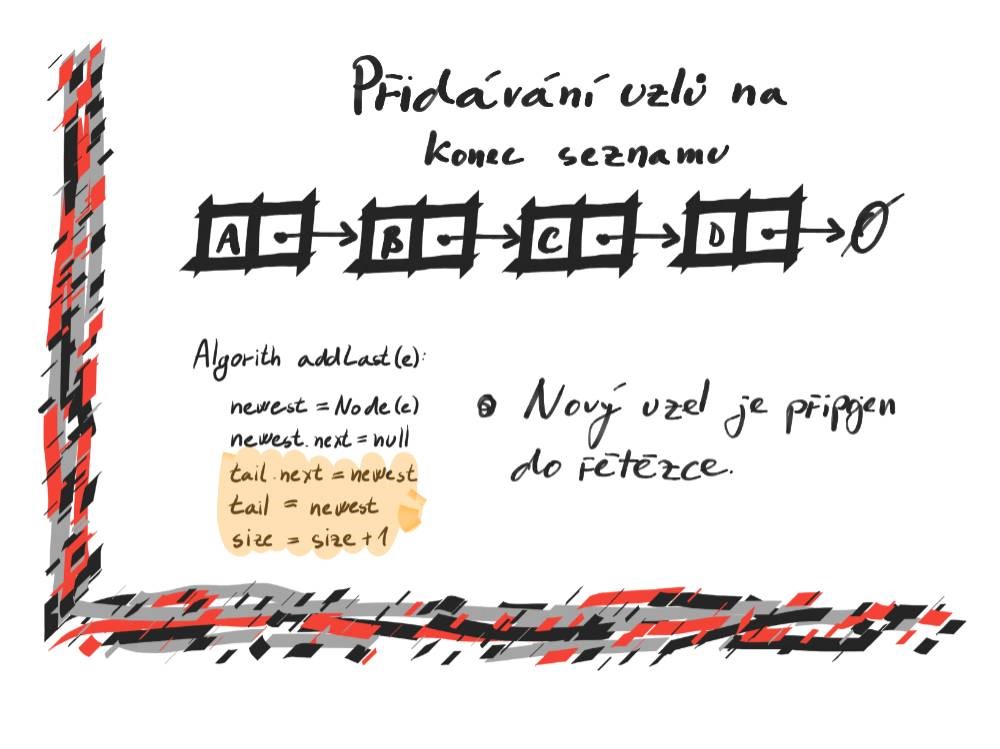 Přidávání uzlů na
konec seznamu
A B C D Ø
Algorith addLast(e):
newest = Node(e)
newest.next = null
tail.next = newest
tail = newest
size = size + 1
Nový uzel je připojen
do řetězce.